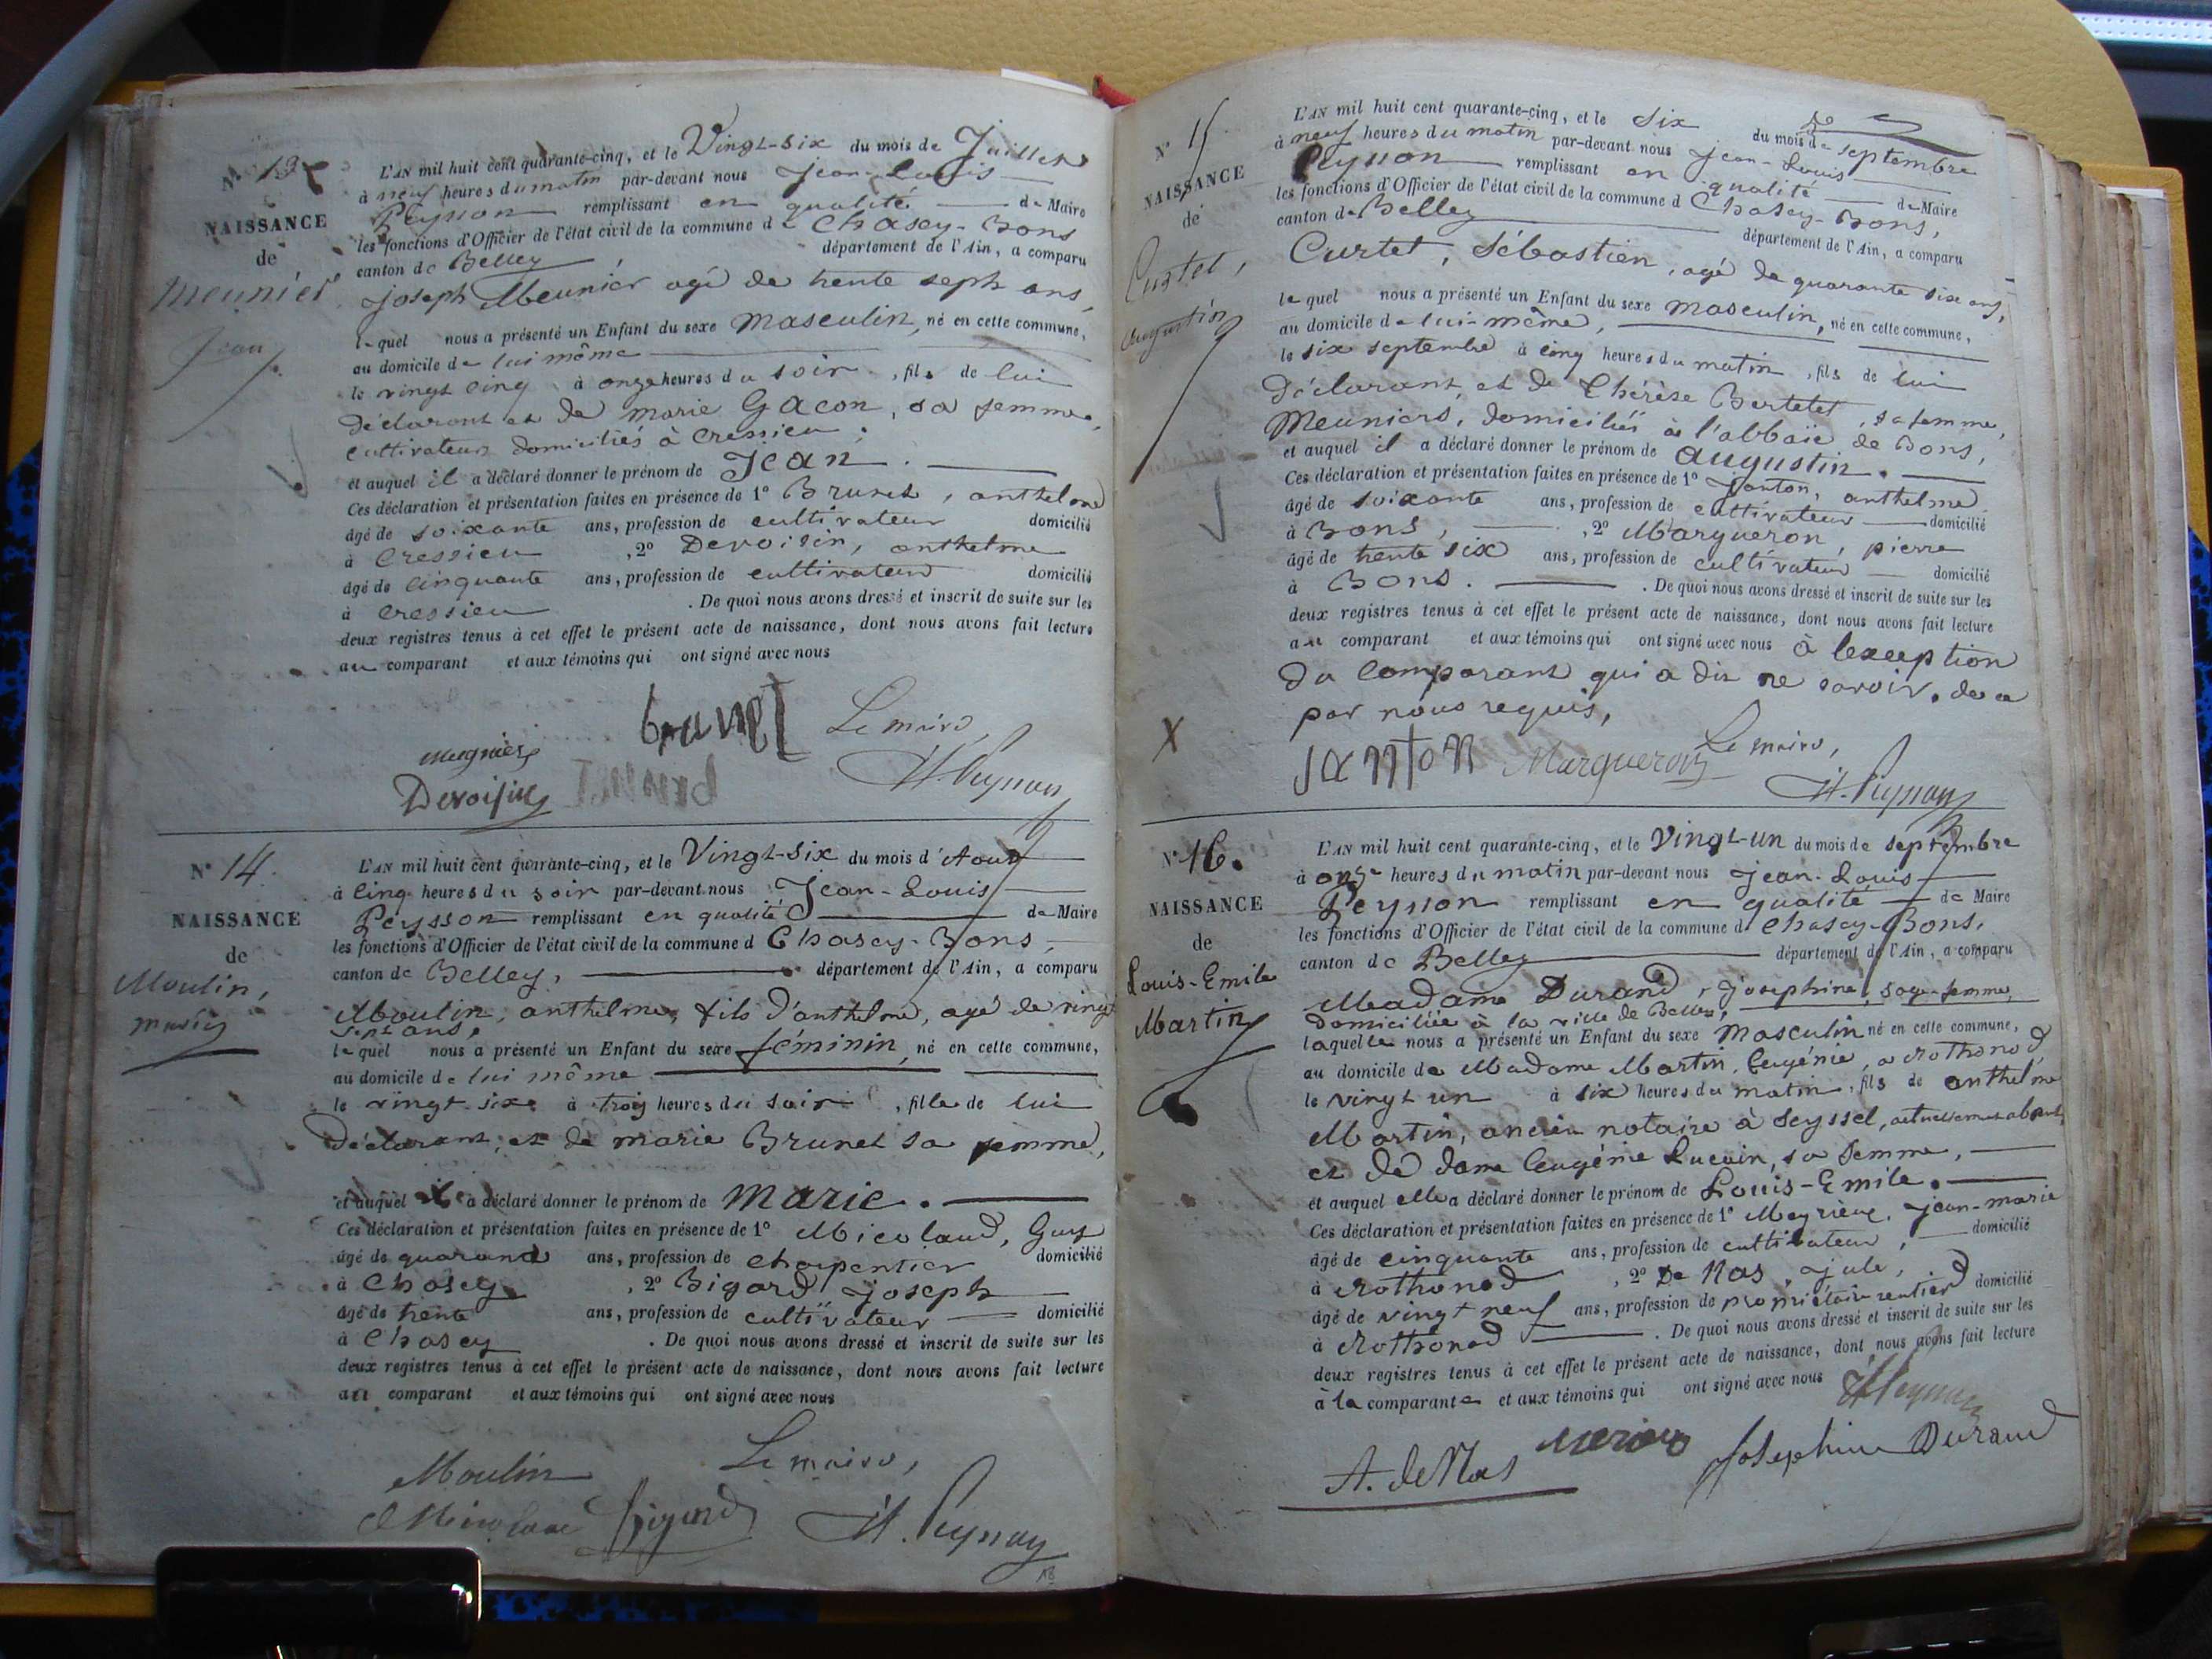 N° 13
NAISSANCE
de
Meunier
Jean
L'AN mil huit cent quarante-cinq, et le Vingt-six du mois de Juillet
à neuf heures du matin par-devant nous Jean-Louis
Peysson remplissant en qualité de Maire
les fonctions d'Officier de l'état civil de la commune de Chasey-Bons
canton de Belley département de l'Ain, a comparu
Joseph Meunier agé de trente sept ans,
lequel nous a présenté un Enfant du sexe masculin, né en cette commune,
au domicile de lui même
le vingt cinq à onze heures du soir, fils de lui
déclarant et de marie Gacon, sa femme,
cultivateurs domiciliés à Cressieu,
et auquel il a déclaré donner le prénom de Jean.
Ces déclaration et présentation faites en présence de 1° Brunet, anthelme
âgé de soixante ans, profession de cultivateur domicilié
à Cressieu, 2° Devoisin, anthelme
âgé de cinquante ans, profession de cultivateur domicilié
à Cressieu. De quoi nous avons dressé et inscrit de suite sur les
deux registres tenus à cet effet le présent acte de naissance, dont nous avons fait lecture
au comparant et aux témoins qui ont signé avec nous
Le maire,
Devoisin
N° 14.
NAISSANCE
de
Moulin,
marie
L'AN mil huit cent quarante-cinq, et le Vingt-six du mois d'Aout
à cinq heures du soir par-devant nous Jean-Louis
Peysson remplissant en qualité de Maire
les fonctions d'Officier de l'état civil de la commune d Chasey-Bons,
canton de Belley, département de l'Ain, a comparu
Moulin, anthelme, fils d'anthelme, agé de vingt
sept ans,
lequel nous a présenté un Enfant du sexe féminin, né en cette commune,
au domicile de lui même
le vingt-six à trois heures du soir, fille de lui
déclarant, et de marie Brunet sa femme,
et auquel il a déclaré donner le prénom de Marie.
Ces déclaration et présentation faites en présence de 1° Micolaud, Guy
âgé de quarante ans, profession de charpentier domicilié
à Chasey, 2° Bigard joseph
âgé de trente ans, profession de cultivateur domicilié
à Chasey. De quoi nous avons dressé et inscrit de suite sur les
deux registres tenus à cet effet le présent acte de naissance, dont nous avons fait lecture
au comparant et aux témoins qui ont signé avec nous
Le maire,
Moulin
N° 15
NAISSANCE
de
Curtet,
Augustin
L'AN mil huit cent quarante-cinq, et le six du mois de septembre
à neuf heures du matin par-devant nous Jean-Louis
Peysson remplissant en qualité de Maire
les fonctions d'Officier de l'état civil de la commune d Chasey-Bons,
canton de Belley département de l'Ain, a comparu
Curtet, Sébastien, agé de quarante six ans,
lequel nous a présenté un Enfant du sexe masculin, né en cette commune,
au domicile de lui-même,
le six septembre à cinq heures du matin, fils de lui
déclarant, et de Thérèse Bertetet, sa femme,
Meuniers, domiciliés à l'abbaïe de Bons,
et auquel il a déclaré donner le prénom de augustin.
Ces déclaration et présentation faites en présence de 1° Janton, anthelme
âgé de soixante ans, profession de cultivateur domicilié
à Bons, 2° Margueron, pierre
âgé de trente six ans, profession de cultivateur domicilié
à Bons. De quoi nous avons dressé et inscrit de suite sur les
deux registres tenus à cet effet le présent acte de naissance, dont nous avons fait lecture
au comparant et aux témoins qui ont signé avec nous à lexception
du comparant qui a dit ne savoir, de ce
par nous requis,
Le maire,
Janton Margueron
N° 16.
NAISSANCE
de
Louis-Emile
Martin
L'AN mil huit cent quarante-cinq, et le Vingt-un du mois de septembre
à onze heures du matin par-devant nous Jean-Louis
Peysson remplissant en qualité de Maire
les fonctions d'Officier de l'état civil de la commune de Chasey-Bons,
canton de Belley département de l'Ain, a comparu
Madame Durand, josephine, sage-femme,
domiciliée à la ville de Belley,
laquelle nous a présenté un Enfant du sexe Masculin né en cette commune,
au domicile de Madame Martin, Eugénie, a Rothonod
le vingt un à six heures du matin, fils de anthelme
Martin, ancien notaire à Seyssel, actuellement absent,
et de dame Eugénie Lucuin, sa femme,
et auquel elle a déclaré donner le prénom de Louis-Emile.
Ces déclaration et présentation faites en présence de 1° Meyrieux, jean-marie
âgé de cinquante ans, profession de cultivateur, domicilié
à Rothonod, 2° De Nas, jule,
âgé de vingt neuf ans, profession de propriétaire rentier domicilié
à Rothonod. De quoi nous avons dressé et inscrit de suite sur les
deux registres tenus à cet effet le présent acte de naissance, dont nous avons fait lecture
à la comparante et aux témoins qui ont signé avec nous
A. de Nas Josephine Durand